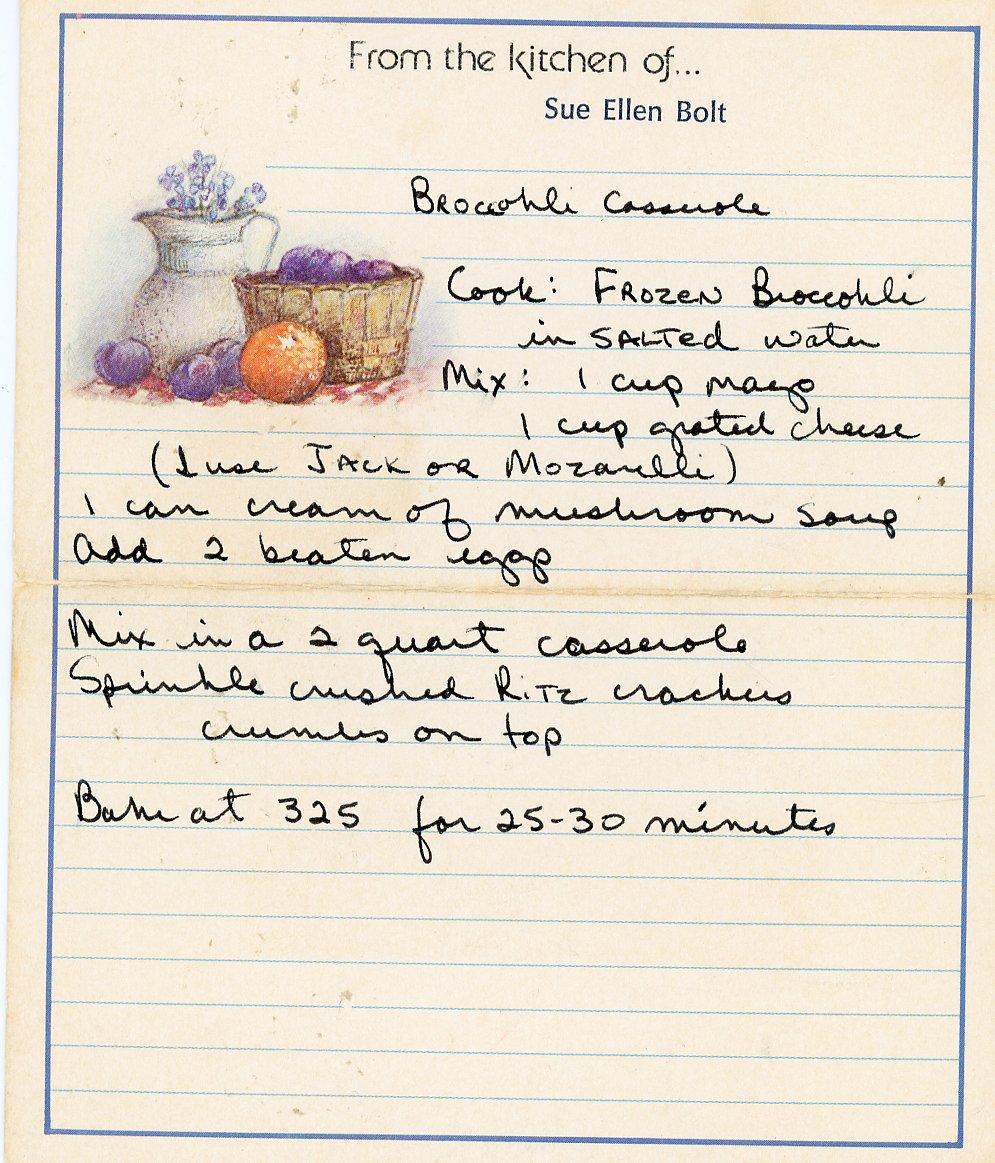 From the kitchen of...
Sue Ellen Bolt
Broccohli Casserole
Cook: Frozen Broccohli
in SALTed water
Mix: 1 cup mayo
1 cup grated cheese
(I use JACK OR Mozarelli)
1 can cream of mushroom soup
Add 2 beaten eggs
Mix in a 2 quart casserole
Sprinkle crushed RiTz crackers
crumbs on top
Bake at 325 for 25-30 minutes